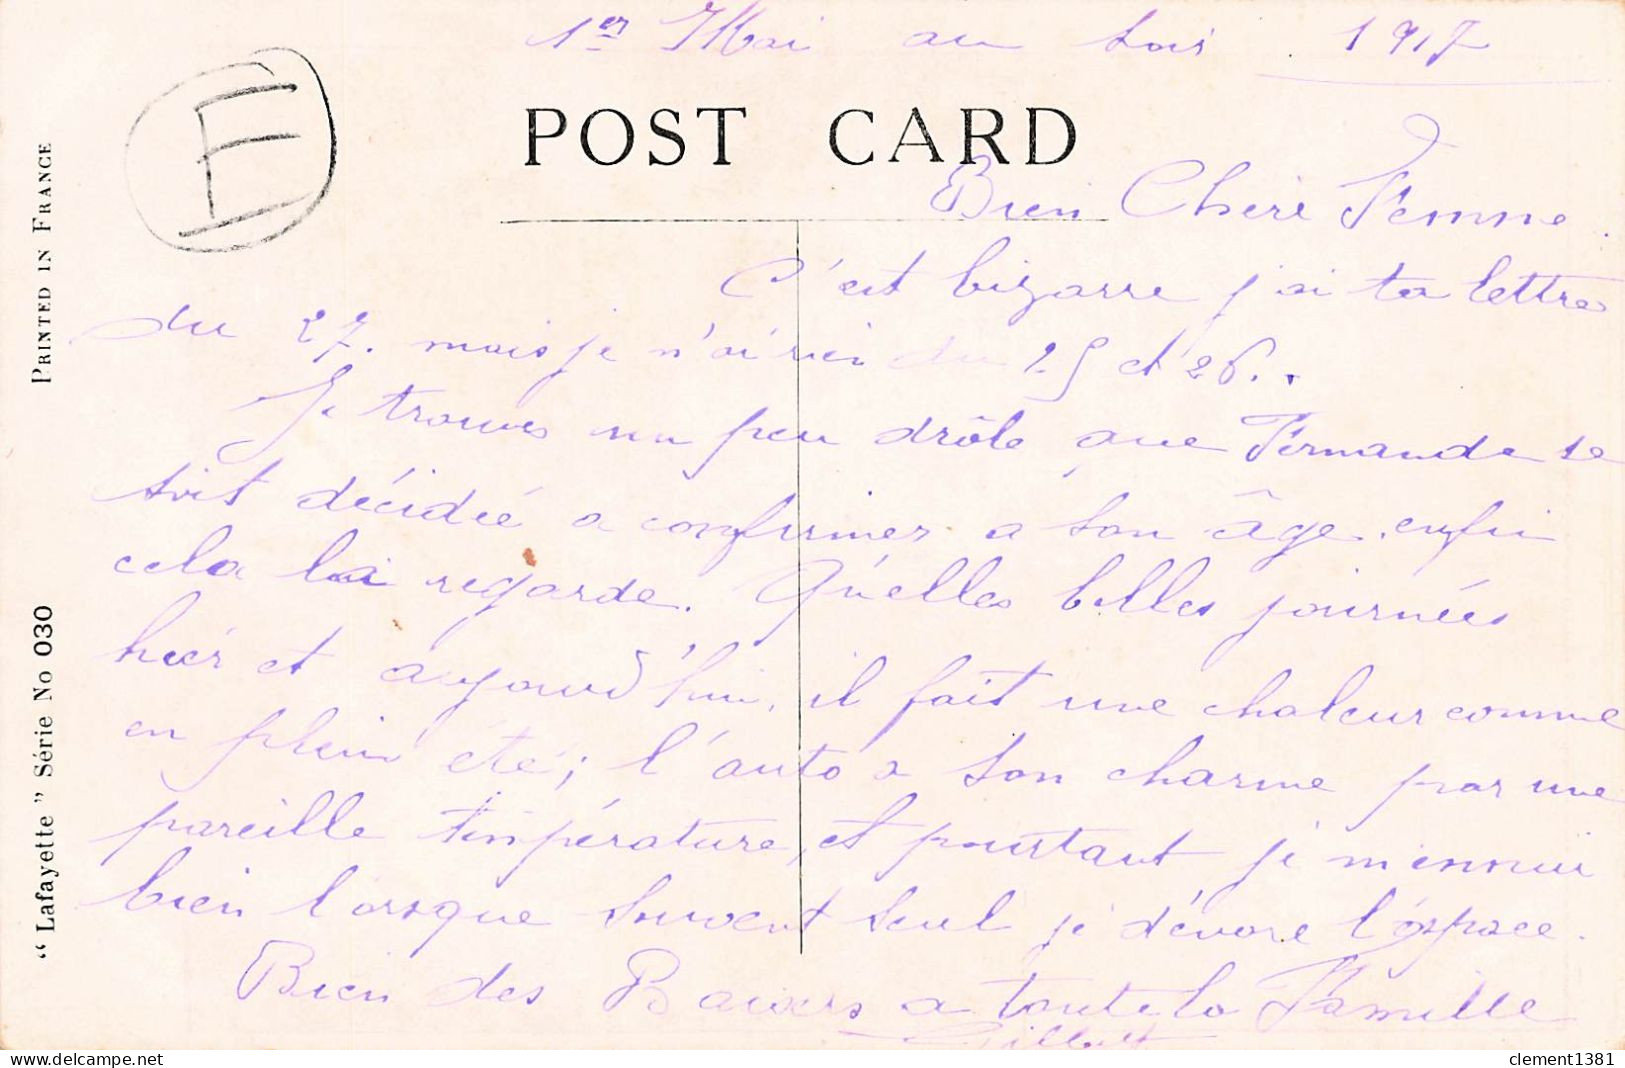 1er Mai au soir 1917
E
POST CARD
PRINTED IN FRANCE
“ Lafayette ” Série No 030
Bien Chère Femme
C'est bizarre j'ai ta lettre
du 27. mais je n'ai rien du 25 et 26..
Je trouves un peu drôle que Fernande se
soit décidée a confirmer a son âge. enfin
cela la regarde. Qu'elles belles journées
hier et aujourd'hui, il fait une chaleur comme
en plein été; l'auto a son charme par une
pareille température, et pourtant je m'ennui
bien lorsque souvent seul je dévore l'éspace.
Bien des Baisers a toute la Famille
Gilbert
clement1381